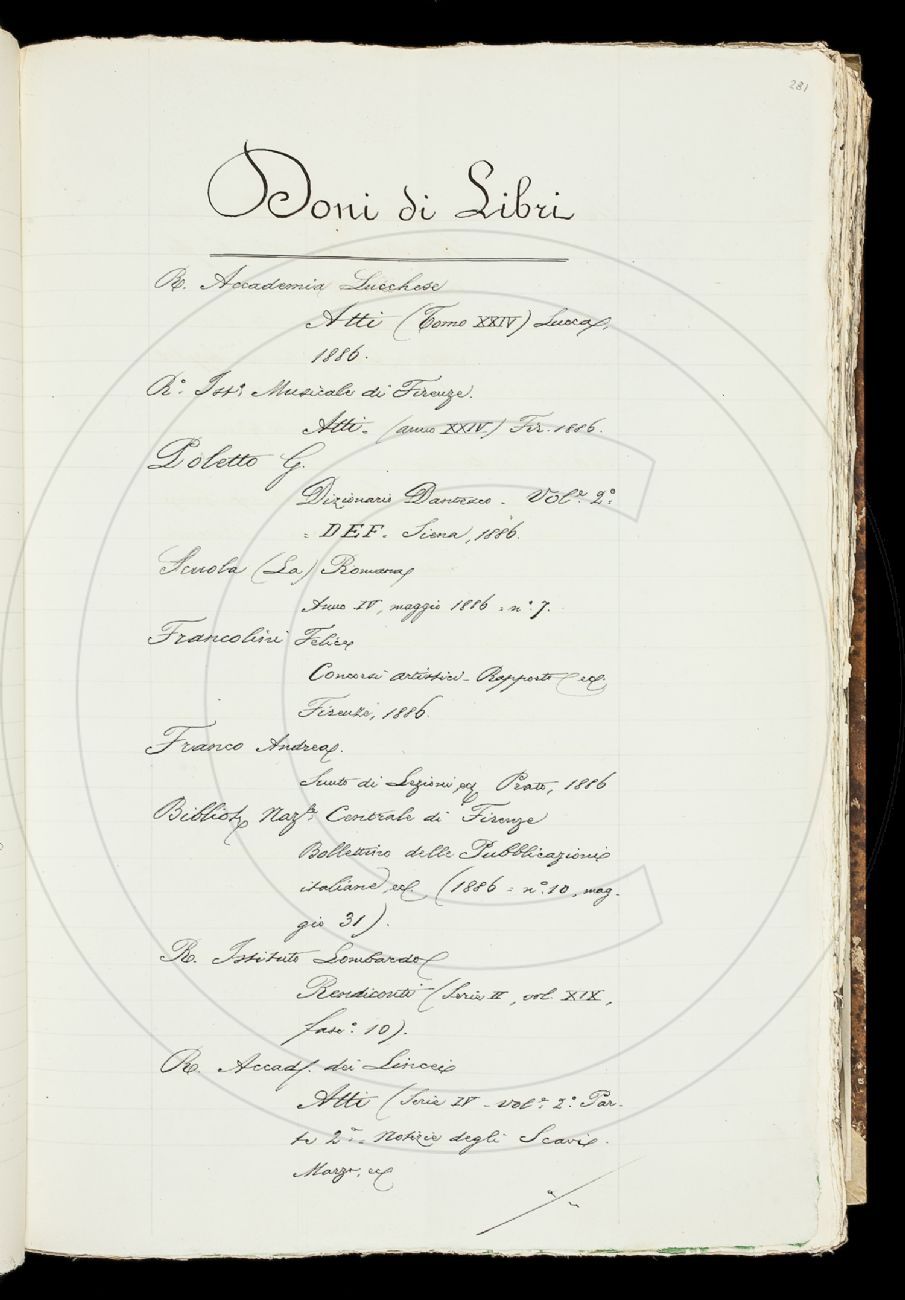 281
Doni di Libri
R. Accademia Lucchese
Atti (Tomo XXIV) Lucca,
1886.
R.° Ist.° Musicale di Firenze.
Atti - (anno XXIV.) Fir. 1886.
Poletto G.
Dizionario Dantesco - Vol.e 2.°
= DEF. Siena, 1886.
Scuola (La) Romana
Anno IV, maggio 1886 = n.° 7.
Francolini Felice
Concorsi artistici - Rapporto ecc.
Firenze, 1886.
Franco Andrea.
Sunto di Lezioni, ecc. Prato, 1886
Bibliot. Naz.le Centrale di Firenze
Bollettino delle Pubblicazioni
italiane, ecc. (1886 = n.° 10, mag-
gio 31).
R. Istituto Lombardo
Rendiconti (Serie II, vol. XIX,
fasc.° 10).
R. Accad. dei Lincei
Atti (Serie IV - vol.e 2.° Par-
te 2.a - Notizie degli Scavi.
Marzo, ecc.